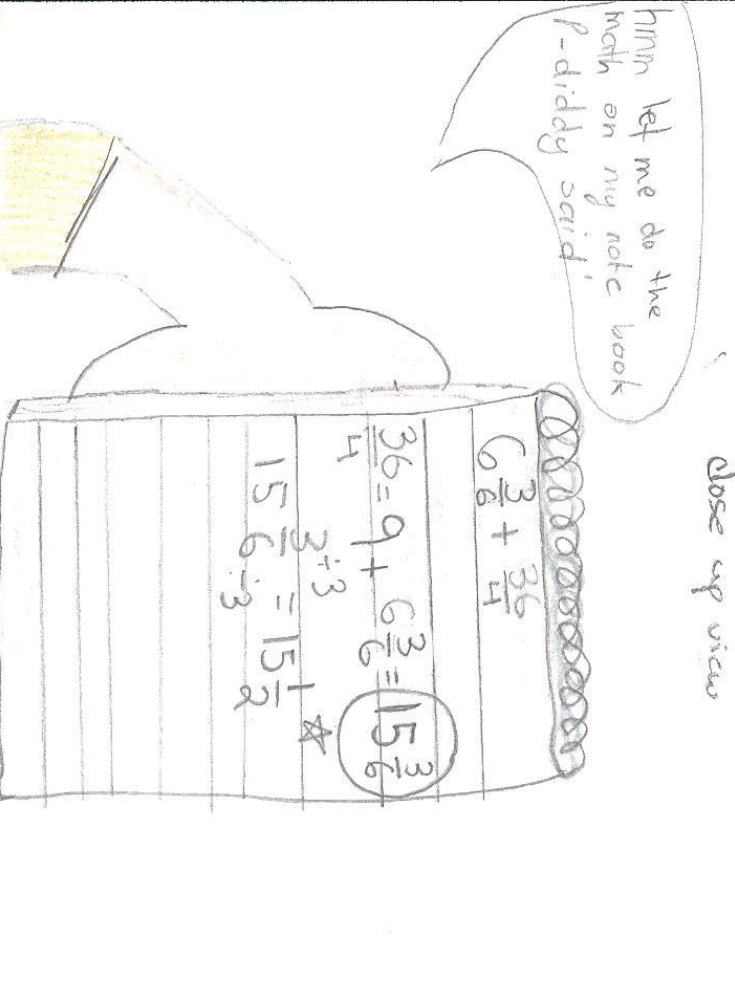 close up view
hmm let me do the
math on my note book
P-diddy said'
6 3/6 + 36/4
36/4 = 9 + 6 3/6 = 15 3/6
15 3÷3/6÷3 = 15 1/2